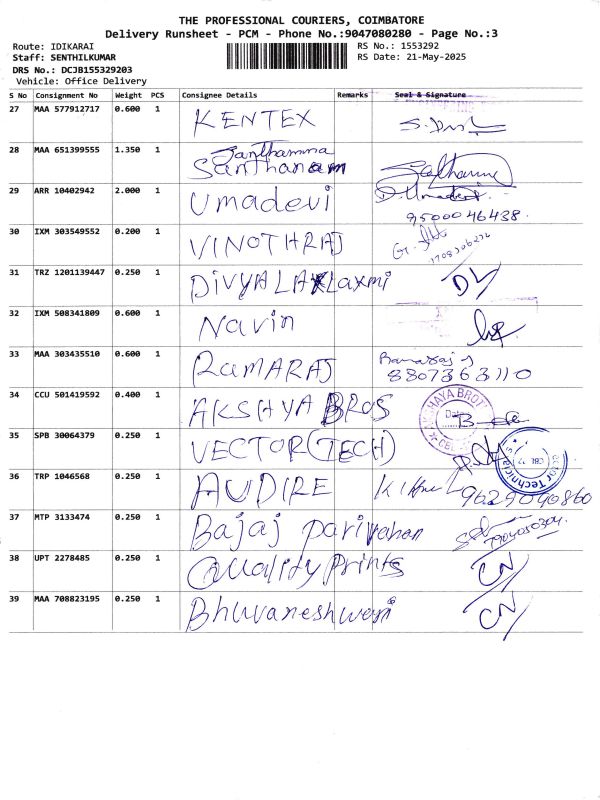 THE PROFESSIONAL COURIERS, COIMBATORE
Delivery Runsheet - PCM - Phone No.:9047080280 - Page No.:3
Route: IDIKARAI
RS No.: 1553292
Staff: SENTHILKUMAR
RS Date: 21-May-2025
DRS No.: DCJB155329203
Vehicle: Office Delivery
S No Consignment No Weight PCS Consignee Details Remarks Seal & Signature
27 MAA 577912717 0.600 1 KENTEX
28 MAA 651399555 1.350 1 Santhamma
Santhanam
29 ARR 10402942 2.000 1 Umadevi D. Umadevi
9500046438.
30 IXM 303549552 0.200 1 VINOTHRAJ
31 TRZ 1201139447 0.250 1 DIVYALAKLaxmi
32 IXM 508341809 0.600 1 Navin
33 MAA 303435510 0.600 1 RAMARAJ
8807363110
34 CCU 501419592 0.400 1 AKSHYA BROS
35 SPB 30064379 0.250 1 VECTOR(TECH)
36 TRP 1046568 0.250 1 AUDIRE 9629040860
37 MTP 3133474 0.250 1 Bajaj parivahan
38 UPT 2278485 0.250 1 Quality Prints
39 MAA 708823195 0.250 1 Bhuvaneshweri